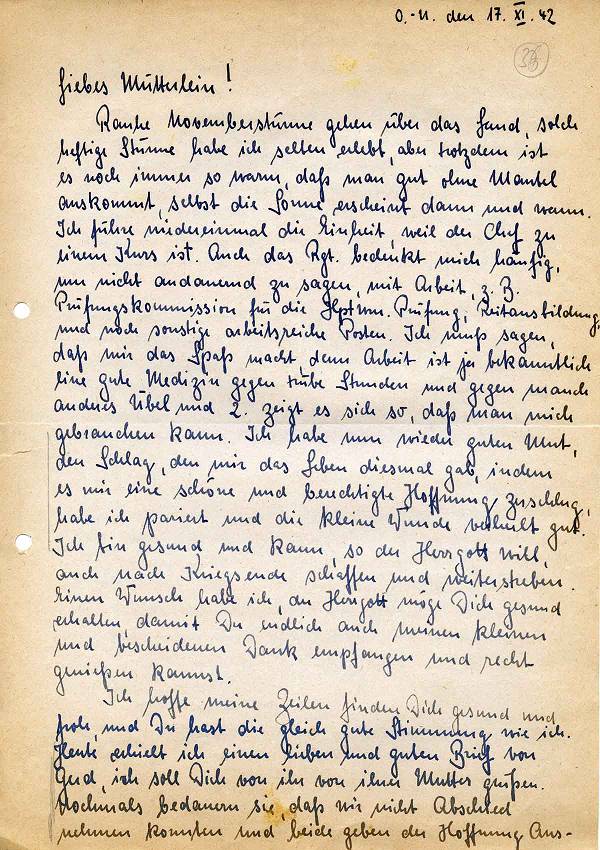 O.-U. den 17. XI. 42
38
Liebes Mütterlein!
Rauhe Novemberstürme gehen über das Land, solch
heftige Stürme habe ich selten erlebt, aber trotzdem ist
es noch immer so warm, daß man gut ohne Mantel
auskommt, selbst die Sonne erscheint dann und wann.
Ich führe wiedereinmal die Einheit weil der Chef zu
einem Kurs ist. Auch das Rgt. bedenkt mich häufig,
um nicht andauernd zu sagen, mit Arbeit, z. B.
Prüfungskommission für die Hptm. Prüfung, Reitausbildung,
und noch sonstige arbeitsreiche Posten. Ich muß sagen,
daß mir das Spaß macht, denn Arbeit ist ja bekanntlich
eine gute Medizin gegen trübe Stunden und gegen manch
anderes Übel und 2. zeigt es sich so, daß man mich
gebrauchen kann. Ich habe nun wieder guten Mut,
den Schlag, den mir das Leben diesmal gab, indem
es mir eine schöne und berechtigte Hoffnung zerschlug,
habe ich pariert und die kleine Wunde verheilt gut.
Ich bin gesund und kann, so der Herrgott will,
auch nach Kriegsende schaffen und weiterstreben.
Einen Wunsch habe ich, der Herrgott möge Dich gesund
erhalten, damit Du endlich auch meinen kleinen
und bescheidenen Dank empfangen und recht
genießen kannst.
Ich hoffe meine Zeilen finden Dich gesund und
froh, und Du hast die gleich gute Stimmung wie ich.
Heute erhielt ich einen lieben und guten Brief von
ich soll Dich von ihr von ihrer Mutter grüßen.
Nochmals bedauern sie, daß wir nicht Abschied
nehmen konnten und beide geben der Hoffnung Aus-